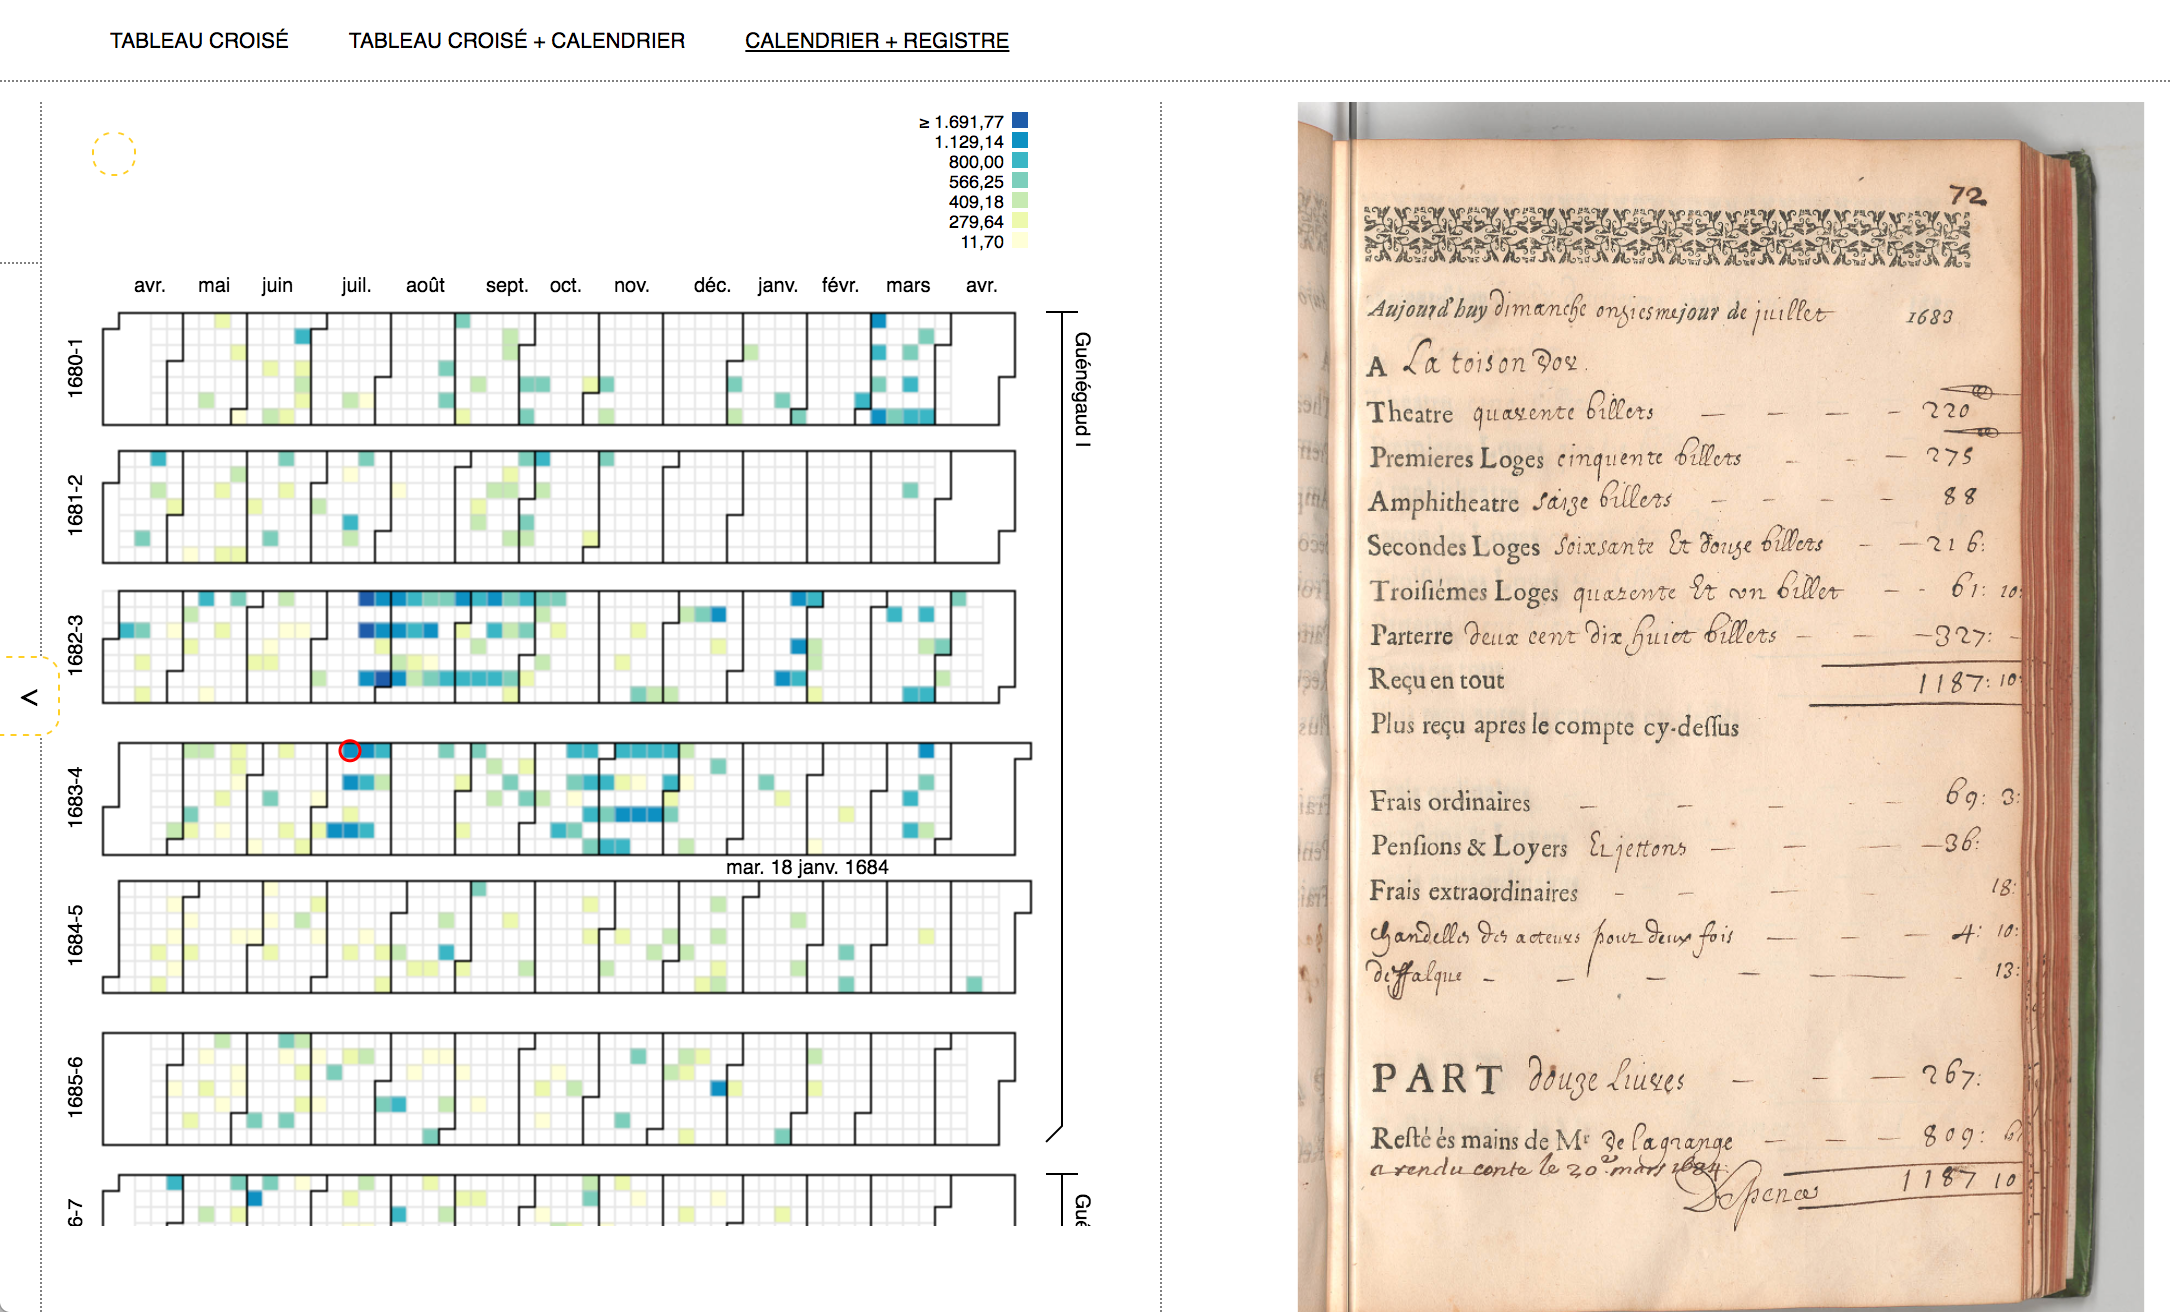 TABLEAU CROISÉ TABLEAU CROISÉ + CALENDRIER CALENDRIER + REGISTRE
≥ 1.691,77
1.129,14
800,00
566,25
409,18
279,64
11,70
avr. mai juin juil. août sept. oct. nov. déc. janv. févr. mars avr.
1680-1
1681-2
1682-3
1683-4
mar. 18 janv. 1684
1684-5
1685-6
6-7
Guénégaud I
Gué
<
72
Aujourd'huy dimanche onziesme jour de juillet 1683
A La toison Dor.
Theatre quarente billets — — — - 220
Premieres Loges cinquente billets - - — 275
Amphitheatre saize billets - - - - 88
Secondes Loges soixsante Et douze billets - — 216:
Troisiémes Loges quarente Et un billet — - 61: 10:
Parterre deux cent dix huict billets — — —327: -
Reçu en tout 1187: 10:
Plus reçu apres le compte cy-dessus
Frais ordinaires — — — — 69: 3:
Pensions & Loyers Et jettons — — —36:
Frais extraordinaires - — — 18:
chandelles des acteurs pour deux fois — — — 4: 10:
deffalque - — — — — - 13:
PART douze Liures — - — 267:
Resté és mains de Mr De lagrange — — — 809: 6
a rendu conte le 20e mars 1684:
1187 10